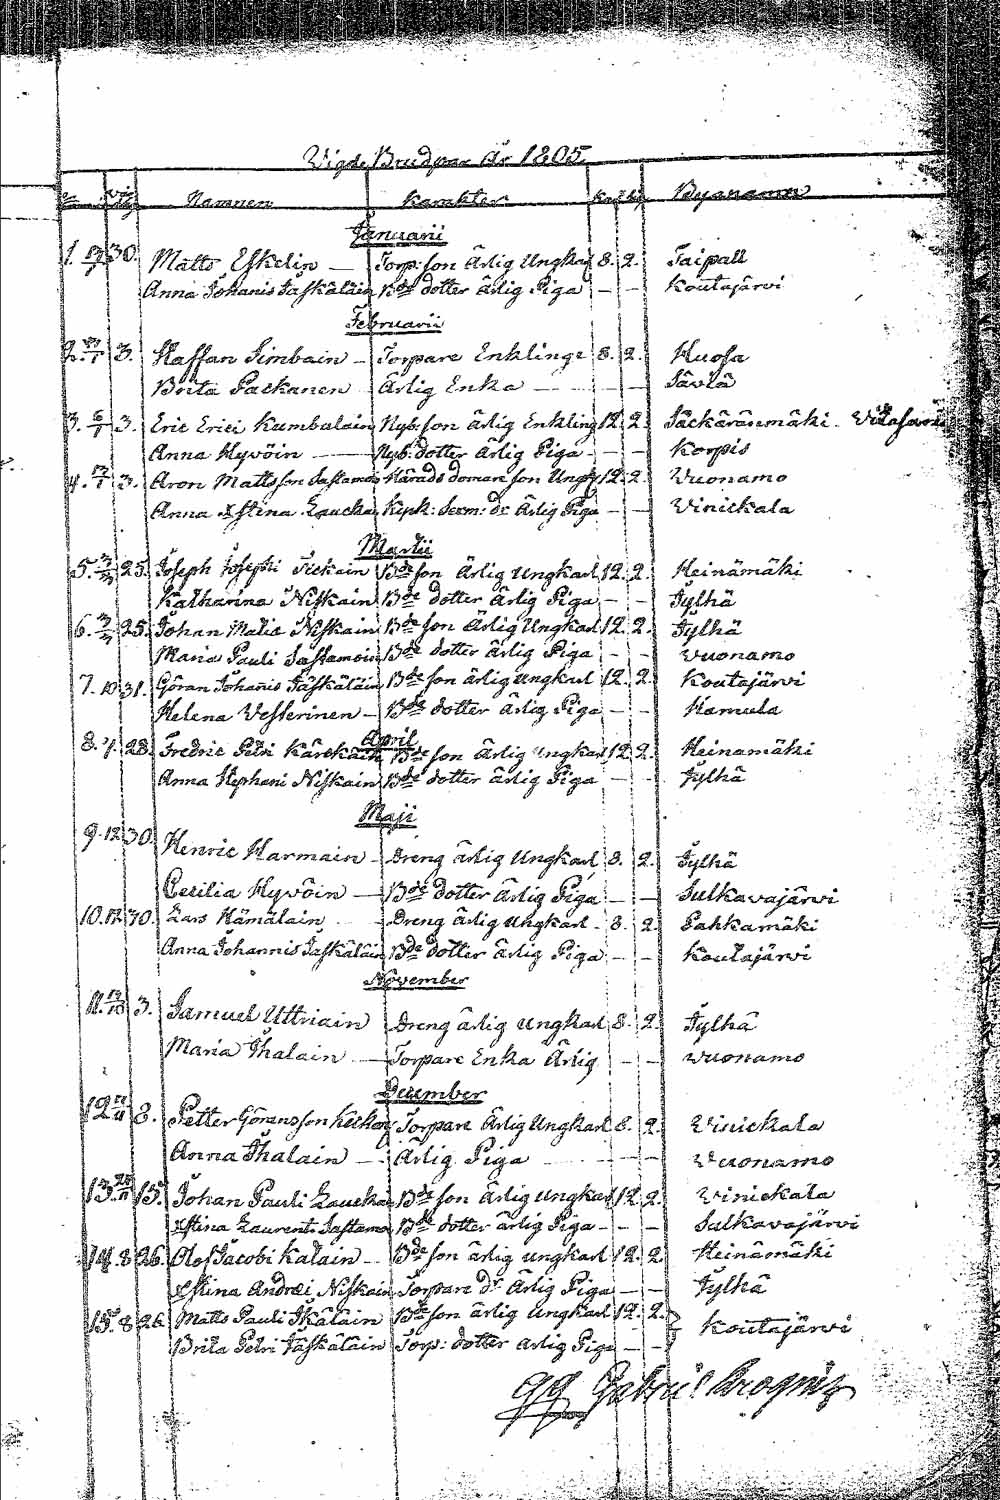 Vigde Brudpar År 1805
Namnen Karakter Byanamn
Januarii
1. 30. Matts Eskelin — Torp: son Ärlig Ungkarl 8. 2. Taipall
Anna Johanis Jäskäläin Bde dotter ärlig Piga — — Koutajärvi
Februarii
2. 3. Staffan Simbain — Torpare Enklinge 8. 2. Kuosa
Brita Packanen Ärlig Enka — — Säviä
3. 6/1 3. Eric Erici Kumbulain Nyb: son ärlig Enkling 12. 2. Säckäräsenmäki
Anna Hyvöin — Nyb: dotter ärlig Piga — — Korpis
4. 3. Aron Mattsson Sastamoin Härads domare son Ungk 12. 2. Vuonamo
Anna Xstina Laucka Kyrk: Sexm: dr Ärlig Piga — — Vinickala
Martii
5. 25. Joseph Josephi Tickain Bde son Ärlig Ungkarl 12. 2. Heinämäki
Katharina Niskain Bde dotter Ärlig Piga — — Jylhä
6. 25. Johan Matts Niskain Bde son Ärlig Ungkarl 12. 2. Jylhä
Maria Pauli Sastamoin Bde dotter ärlig Piga — — Vuonamo
7. 10 31. Göran Johanis Jäskäläin Bde son ärlig Ungkarl 12. 2. Koutajärvi
Helena Vesterinen — Bde dotter Ärlig Piga — — Hamula
April
8. 7. 28. Fredric Petri Kärckäin Bde son Ärlig Ungkarl 12 2. Heinamäki
Anna Stephani Niskain Bde dotter ärlig Piga — — Jylhä
Maji
9. 12 30. Henric Harmain — Dreng ärlig Ungkarl 8. 2. Jylhä
Cecilia Hyvöin — Bde dotter Ärlig Piga — — Sulkavajärvi
10. 12 30. Lars Hämäläin Dreng ärlig Ungkarl 8. 2. Pahkamäki
Anna Johannis Jäskäläin Bde dotter ärlig Piga — — Koutajärvi
November
11. 3. Samuel Uttriain Dreng ärlig Ungkarl 8. 2. Jylhä
Maria Ihalain — Torpare Enka Ärlig — — Vuonamo
December
12 8. Petter Göransson Torpare Ärlig Ungkarl 8. 2. Vinickala
Anna Ihalain — Ärlig Piga — — Vuonamo
13. 15. Johan Pauli Laucka Bde son ärlig Ungkarl 12. 2. Vinickala
Xstina Laurents Sastamo Bde dotter ärlig Piga — — Sulkavajärvi
14. 8 26. Olof Jacobi Kalain — Bde son ärlig Ungkarl 12. 2. Heinämäki
Xstina Andrei Niskain Torpare dr Ärlig Piga — — Jylhä
15. 8 26. Matts Pauli Ikäläin Bde son ärlig Ungkarl 12. 2. Koutajärvi
Brita Petri Jäskäläin Torp: dotter ärlig Piga — —
Gabriel